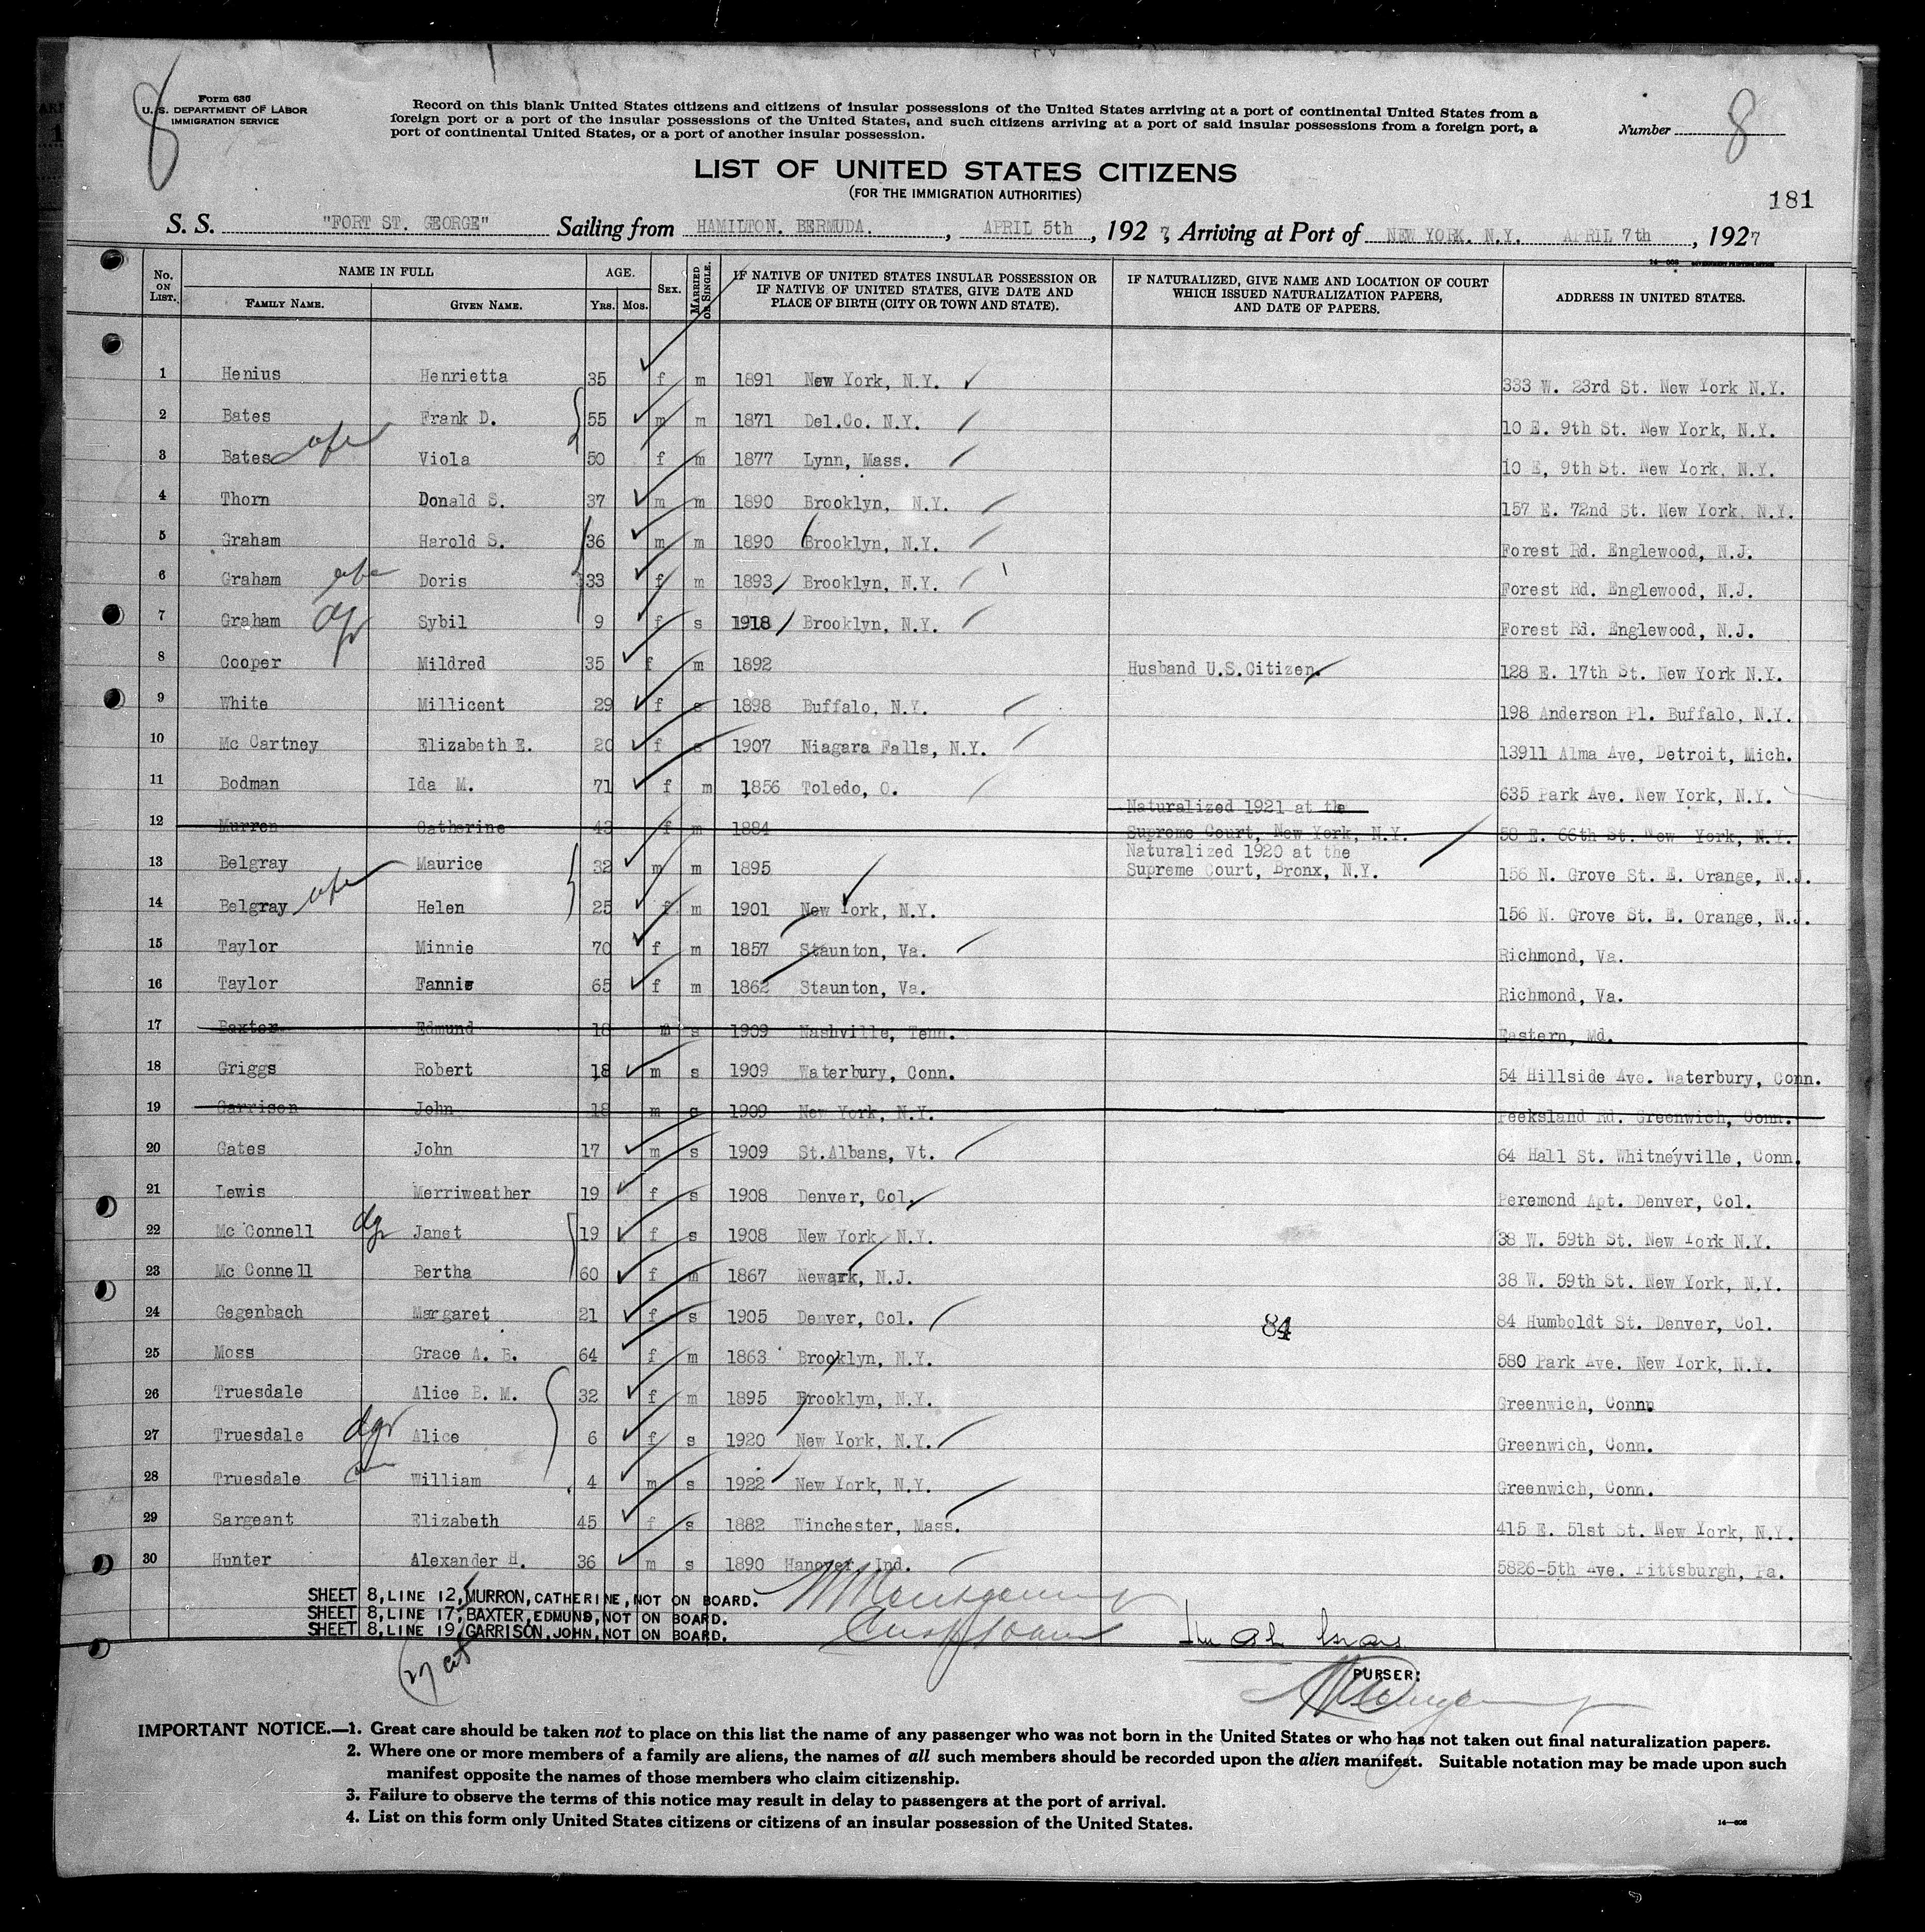 8
Form 630
U. S. DEPARTMENT OF LABOR
IMMIGRATION SERVICE
Record on this blank United States citizens and citizens of insular possessions of the United States arriving at a port of continental United States from a
foreign port or a port of the insular possessions of the United States, and such citizens arriving at a port of said insular possessions from a foreign port, a
port of continental United States, or a port of another insular possession.
Number 8
LIST OF UNITED STATES CITIZENS
(FOR THE IMMIGRATION AUTHORITIES)
181
S. S. "FORT ST. GEORGE" Sailing from HAMILTON. BERMUDA. , APRIL 5th , 1927, Arriving at Port of NEW YORK. N.Y. APRIL 7th , 1927
No. ON LIST. NAME IN FULL FAMILY NAME. GIVEN NAME. AGE. Yrs. Mos. SEX. MARRIED OR SINGLE. IF NATIVE OF UNITED STATES INSULAR POSSESSION OR IF NATIVE OF UNITED STATES, GIVE DATE AND PLACE OF BIRTH (CITY OR TOWN AND STATE). IF NATURALIZED, GIVE NAME AND LOCATION OF COURT WHICH ISSUED NATURALIZATION PAPERS, AND DATE OF PAPERS. ADDRESS IN UNITED STATES.
1 Henius Henrietta 35 f m 1891 New York, N.Y. 333 W. 23rd St. New York N.Y.
2 Bates Frank D. 55 m m 1871 Del.Co. N.Y. 10 E. 9th St. New York, N.Y.
3 Bates Viola 50 f m 1877 Lynn, Mass. 10 E, 9th St. New York, N.Y.
4 Thorn Donald S. 37 m m 1890 Brooklyn, N.Y. 157 E. 72nd St. New York, N.Y.
5 Graham Harold S. 36 m m 1890 Brooklyn, N.Y. Forest Rd. Englewood, N.J.
6 Graham Doris 33 f m 1893 Brooklyn, N.Y. Forest Rd. Englewood, N.J.
7 Graham Sybil 9 f s 1918 Brooklyn, N.Y. Forest Rd. Englewood, N.J.
8 Cooper Mildred 35 f m 1892 Husband U.S.Citizen. 128 E. 17th St. New York N.Y.
9 White Millicent 29 f s 1898 Buffalo, N.Y. 198 Anderson Pl. Buffalo, N.Y.
10 Mc Cartney Elizabeth E. 20 f s 1907 Niagara Falls, N.Y. 13911 Alma Ave, Detroit, Mich.
11 Bodman Ida M. 71 f m 1856 Toledo, O. 635 Park Ave. New York, N.Y.
Naturalized 1921 at the
12 Murron Catherine 43 f m 1884 Supreme Court, New York, N.Y. 58 E. 66th St. New York, N.Y.
Naturalized 1920 at the
13 Belgray Maurice 32 m m 1895 Supreme Court, Bronx, N.Y. 156 N. Grove St. E. Orange, N.J.
14 Belgray Helen 25 f m 1901 New York, N.Y. 156 N. Grove St. E. Orange, N.J.
15 Taylor Minnie 70 f m 1857 Staunton, Va. Richmond, Va.
16 Taylor Fannie 65 f m 1862 Staunton, Va. Richmond, Va.
17 Baxter Edmund 18 m s 1909 Nashville, Tenn. Eastern, Md.
18 Griggs Robert 18 m s 1909 Waterbury, Conn. 54 Hillside Ave. Waterbury, Conn.
19 Garrison John 18 m s 1909 New York, N.Y. Peeksland Rd. Greenwich, Conn.
20 Gates John 17 m s 1909 St.Albans, Vt. 64 Hall St. Whitneyville, Conn.
21 Lewis Merriweather 19 f s 1908 Denver, Col. Peremond Apt. Denver, Col.
22 Mc Connell dgr Janet 19 f s 1908 New York, N.Y. 38 W. 59th St. New York N.Y.
23 Mc Connell Bertha 60 f m 1867 Newark, N.J. 38 W. 59th St. New York, N.Y.
24 Gegenbach Margaret 21 f s 1905 Denver, Col. 84 84 Humboldt St. Denver, Col.
25 Moss Grace A. B. 64 f m 1863 Brooklyn, N.Y. 580 Park Ave. New York, N.Y.
26 Truesdale Alice B. M. 32 f m 1895 Brooklyn, N.Y. Greenwich, Conn
27 Truesdale dgr Alice 6 f s 1920 New York, N.Y. Greenwich, Conn.
28 Truesdale William 4 m s 1922 New York, N.Y. Greenwich, Conn.
29 Sargeant Elizabeth 45 f s 1882 Winchester, Mass. 415 E. 51st St. New York, N.Y.
30 Hunter Alexander H. 36 m s 1890 Hanover, Ind. 5826-5th Ave. Pittsburgh, Pa.
SHEET 8, LINE 12, MURRON, CATHERINE, NOT ON BOARD.
SHEET 8, LINE 17, BAXTER, EDMUND, NOT ON BOARD.
SHEET 8, LINE 19, GARRISON, JOHN, NOT ON BOARD.
27 cit
PURSER:
IMPORTANT NOTICE.—1. Great care should be taken not to place on this list the name of any passenger who was not born in the United States or who has not taken out final naturalization papers.
2. Where one or more members of a family are aliens, the names of all such members should be recorded upon the alien manifest. Suitable notation may be made upon such
manifest opposite the names of those members who claim citizenship.
3. Failure to observe the terms of this notice may result in delay to passengers at the port of arrival.
4. List on this form only United States citizens or citizens of an insular possession of the United States.
14—608